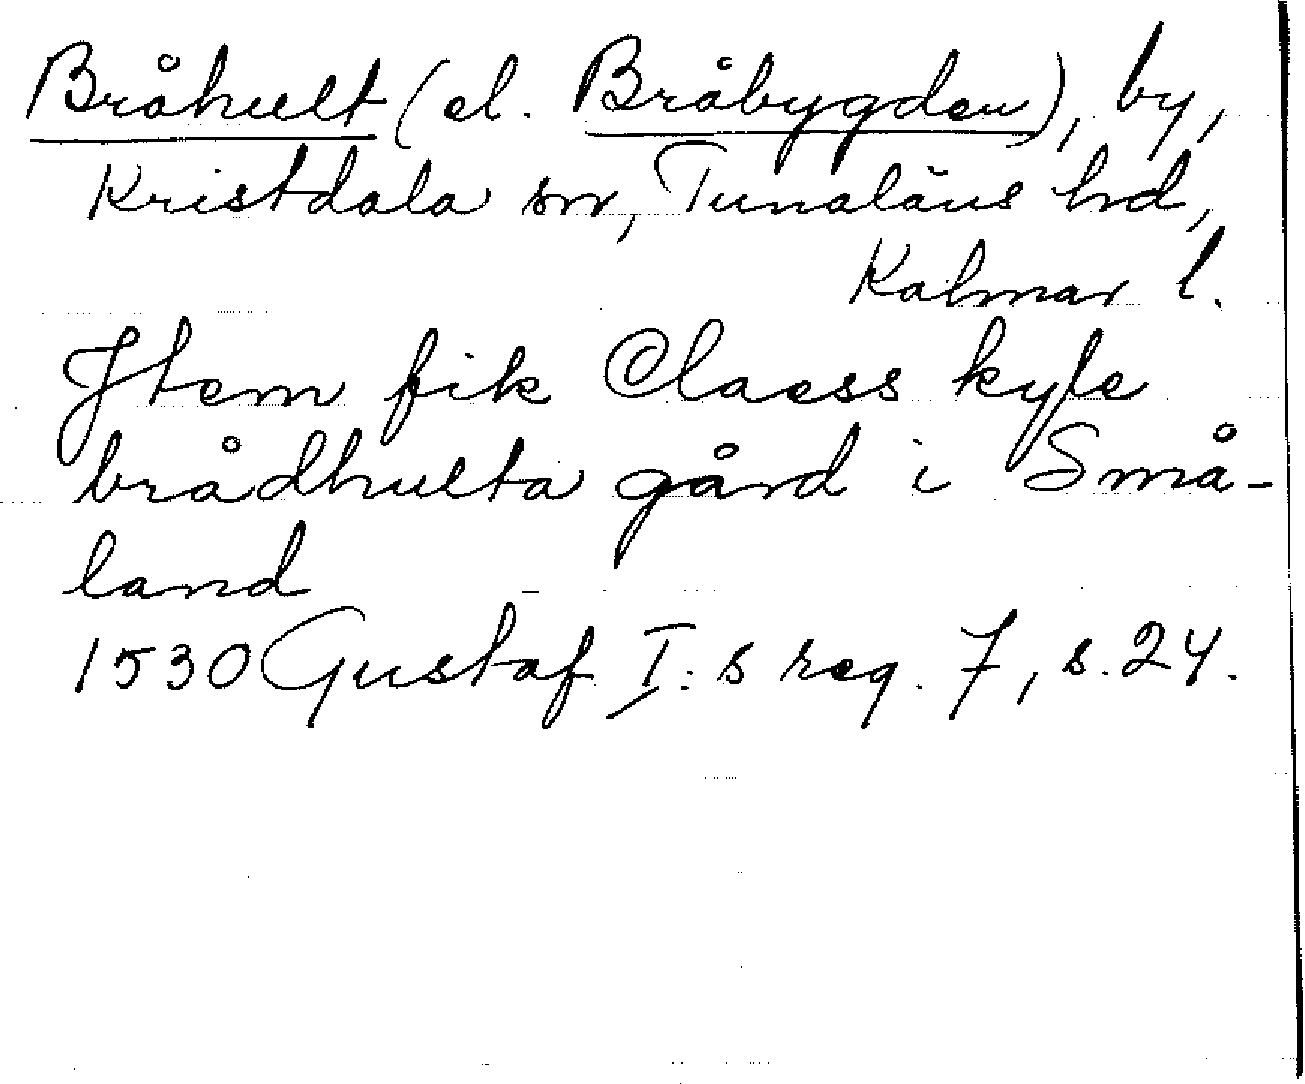 Bråhult (el. Bråbygden), by,
Kristdala sn, Tunaläns hd,
Kalmar l.
Jtem fik Claess kyle
brådhulta gård i Små-
land
1530 Gustaf I:s reg. 7, s. 24.